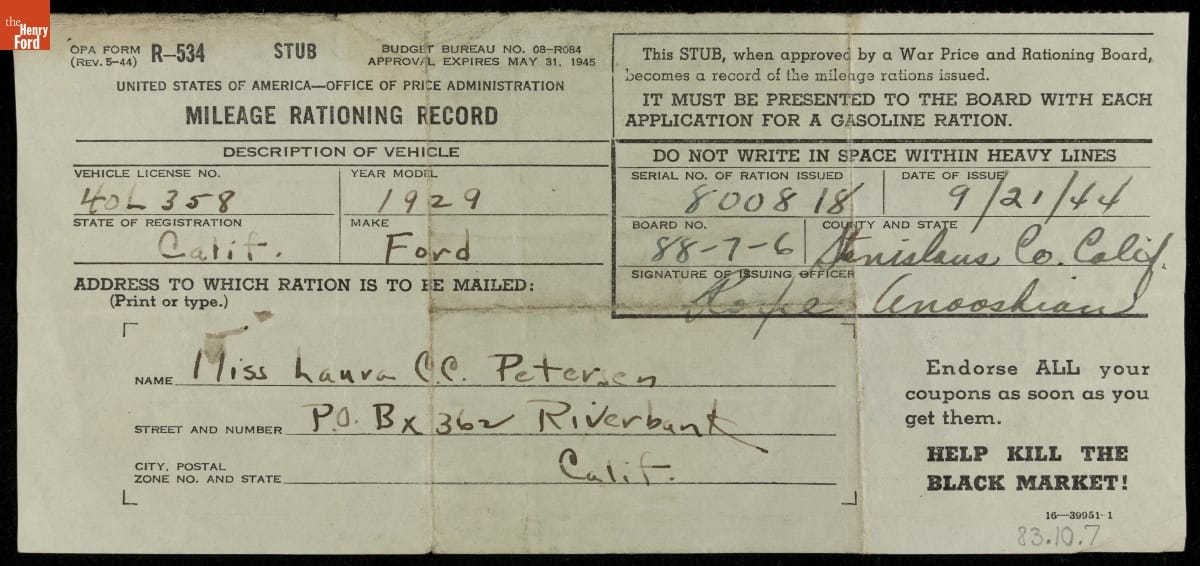 the
Henry
Ford
OPA FORM R–534 STUB BUDGET BUREAU NO. 08–R084
(REV. 5–44) APPROVAL EXPIRES MAY 31, 1945
UNITED STATES OF AMERICA—OFFICE OF PRICE ADMINISTRATION
MILEAGE RATIONING RECORD
DESCRIPTION OF VEHICLE
VEHICLE LICENSE NO. YEAR MODEL
40L 358 1929
STATE OF REGISTRATION MAKE
Calif. Ford
ADDRESS TO WHICH RATION IS TO BE MAILED:
(Print or type.)
NAME Miss Laura C.C. Petersen
STREET AND NUMBER P.O. Bx 362 Riverbank
CITY, POSTAL
ZONE NO. AND STATE Calif.
This STUB, when approved by a War Price and Rationing Board,
becomes a record of the mileage rations issued.
IT MUST BE PRESENTED TO THE BOARD WITH EACH
APPLICATION FOR A GASOLINE RATION.
DO NOT WRITE IN SPACE WITHIN HEAVY LINES
SERIAL NO. OF RATION ISSUED DATE OF ISSUE
800818 9/21/44
BOARD NO. COUNTY AND STATE
88-7-6 Stanislaus Co. Calif.
SIGNATURE OF ISSUING OFFICER
Anooshian
Endorse ALL your
coupons as soon as you
get them.
HELP KILL THE
BLACK MARKET!
16—39951-1
83.10.7